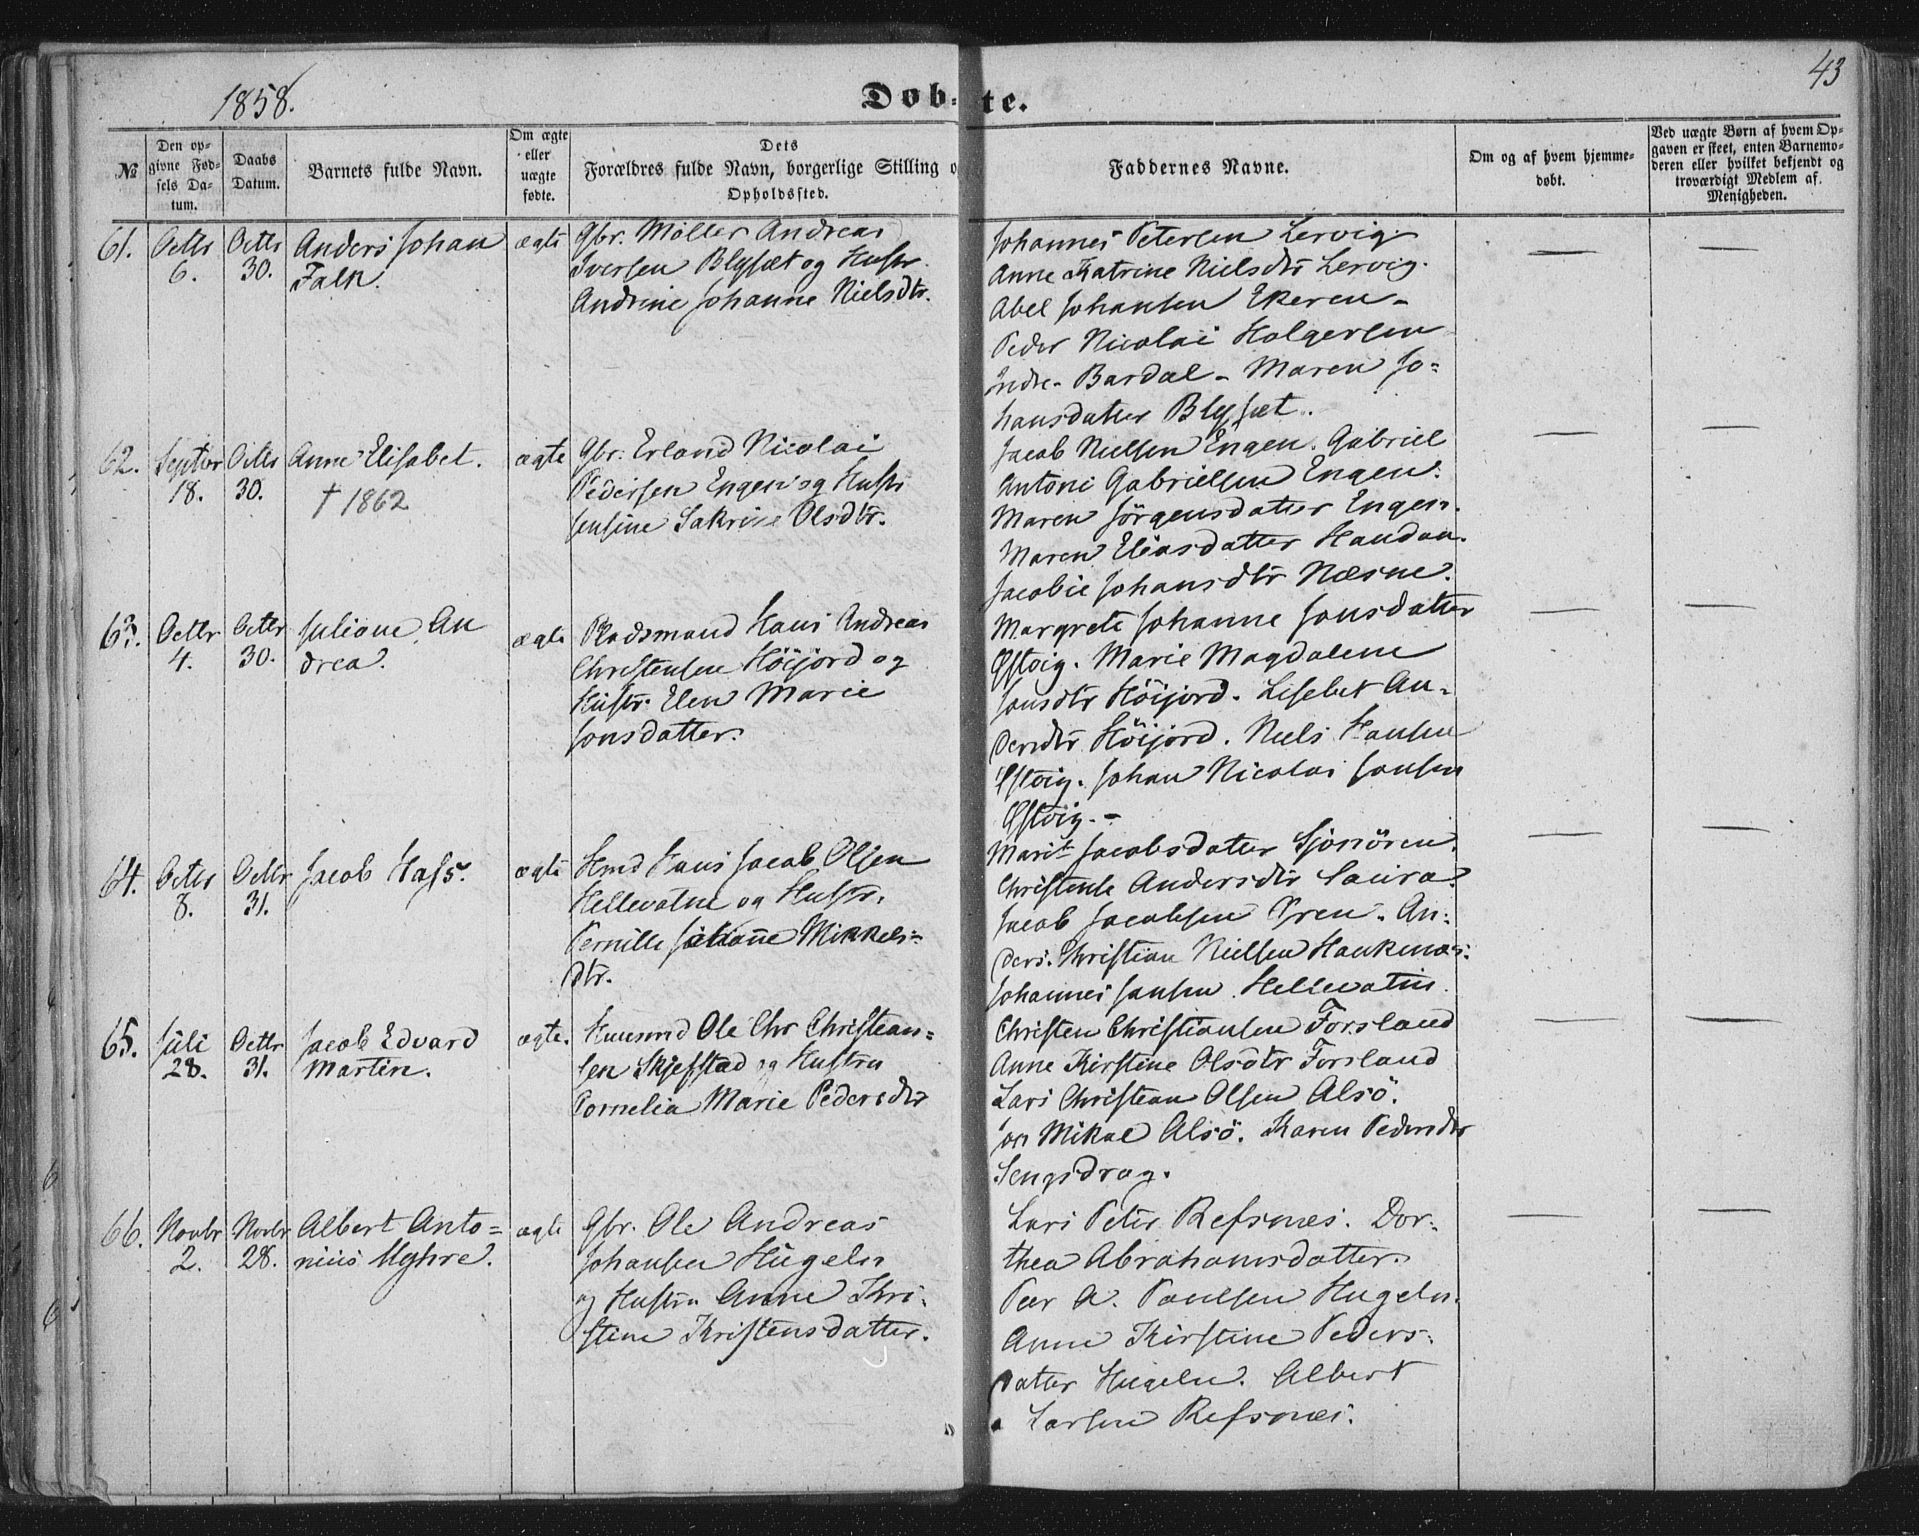 1858.
Døb-
te.
43
№
Den op-
givne Fød-
sels Da-
tum.
Daabs
Datum.
Barnets fulde Navn.
Om ægte
eller
uægte
fødte.
Dets
Forældres fulde Navn, borgerlige Stilling o
Opholdssted.
Faddernes Navne.
Om og af hvem hjemme-
døbt.
Ved uægte Børn af hvem Op-
gaven er skeet, enten Barnemo-
deren eller hvilket bekjendt og
troværdigt Medlem af
Menigheden.
61.
Octbr
6.
Octbr
30.
Anders Johan
Falk.
ægte
Gbr. Møller Andreas
Iversen Blysæt og Hustr.
Andrine Johanne Nielsdtr.
Johannes Petersen Lervig
Anne Katrine Nielsdtr Lervig.
Abel Johansen Ekeren -
Peder Nicolai Holgersen
Indre- Bardal - Maren Jo-
hansdatter Blysæt.
—
—
62.
Septbr
18.
Octbr
30.
Anne Elisabet.
† 1862
ægte
Gbr. Erland Nicolai
Pedersen Engen og Hustr
Jensine Sakrine Olsdtr.
Jacob Nielsen Engen. Gabriel
Antoni Gabrielsen Engen.
Maren Jørgensdatter Engen.
Maren Eliasdatter Haudan.
Jacobie Johansdtr Næsne.
—
—
63.
Octbr
4.
Octbr
30.
Juliane An
drea.
ægte
Pladsmand Hans Andreas
Christensen Höijord og
Hustr. Elen Marie
Jonsdatter.
Margrete Johanne Jonsdatter
Østvig. Marie Magdalene
Jonsdtr Höijord. Lisebet An-
dersdtr Höijord. Niels Hansen
Østvig. Johan Nicolai Jonsen
Østvig. -
—
—
64.
Octbr
8.
Octbr
31.
Jacob Hass.
ægte
Hmd Hans Jacob Olsen
Hellevatne og Hustr.
Pernille Johanne Mikkels-
dtr.
Marit Jacobsdatter
Christense Andersdtr
Jacob Jacobsen Ören. An-
ders. Christian Nielsen Haukenæs.
Johannes Jansen. Hellevatne.
—
—
65.
Juli
28.
Octbr
31.
Jacob Edvard
Martin.
ægte.
Huusmd Ole Chr Christian-
sen Skjefstad og Hustru
Cornelia Marie Pedersdtr
Christen Christiansen Forsland
Anne Kirstine Olsdtr Forsland
Lars Christian Olsen Alsö.
Jon Mikal Alsö. Karen Pedersdtr
Sengsdrag.
—
—
66.
Novbr
2.
Novbr
28.
Albert Anto-
nius Myhre.
ægte
Gbr. Ole Andreas
Johansen Hugeln
og Hustru Anne Kri-
stine Kristensdatter.
Lars Peter Refsnæs. Dor-
thea Abrahamsdatter.
Peer A. Poulsen Hugeln.
Anne Kirstine Peders-
datter Hugeln. Albert
Larsen Refsnæs.
—
—